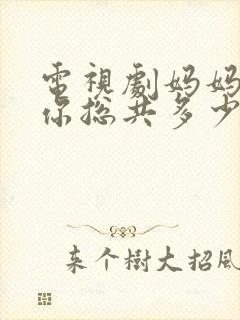 電視劇妈妈
你总共多少
来个樹大招風